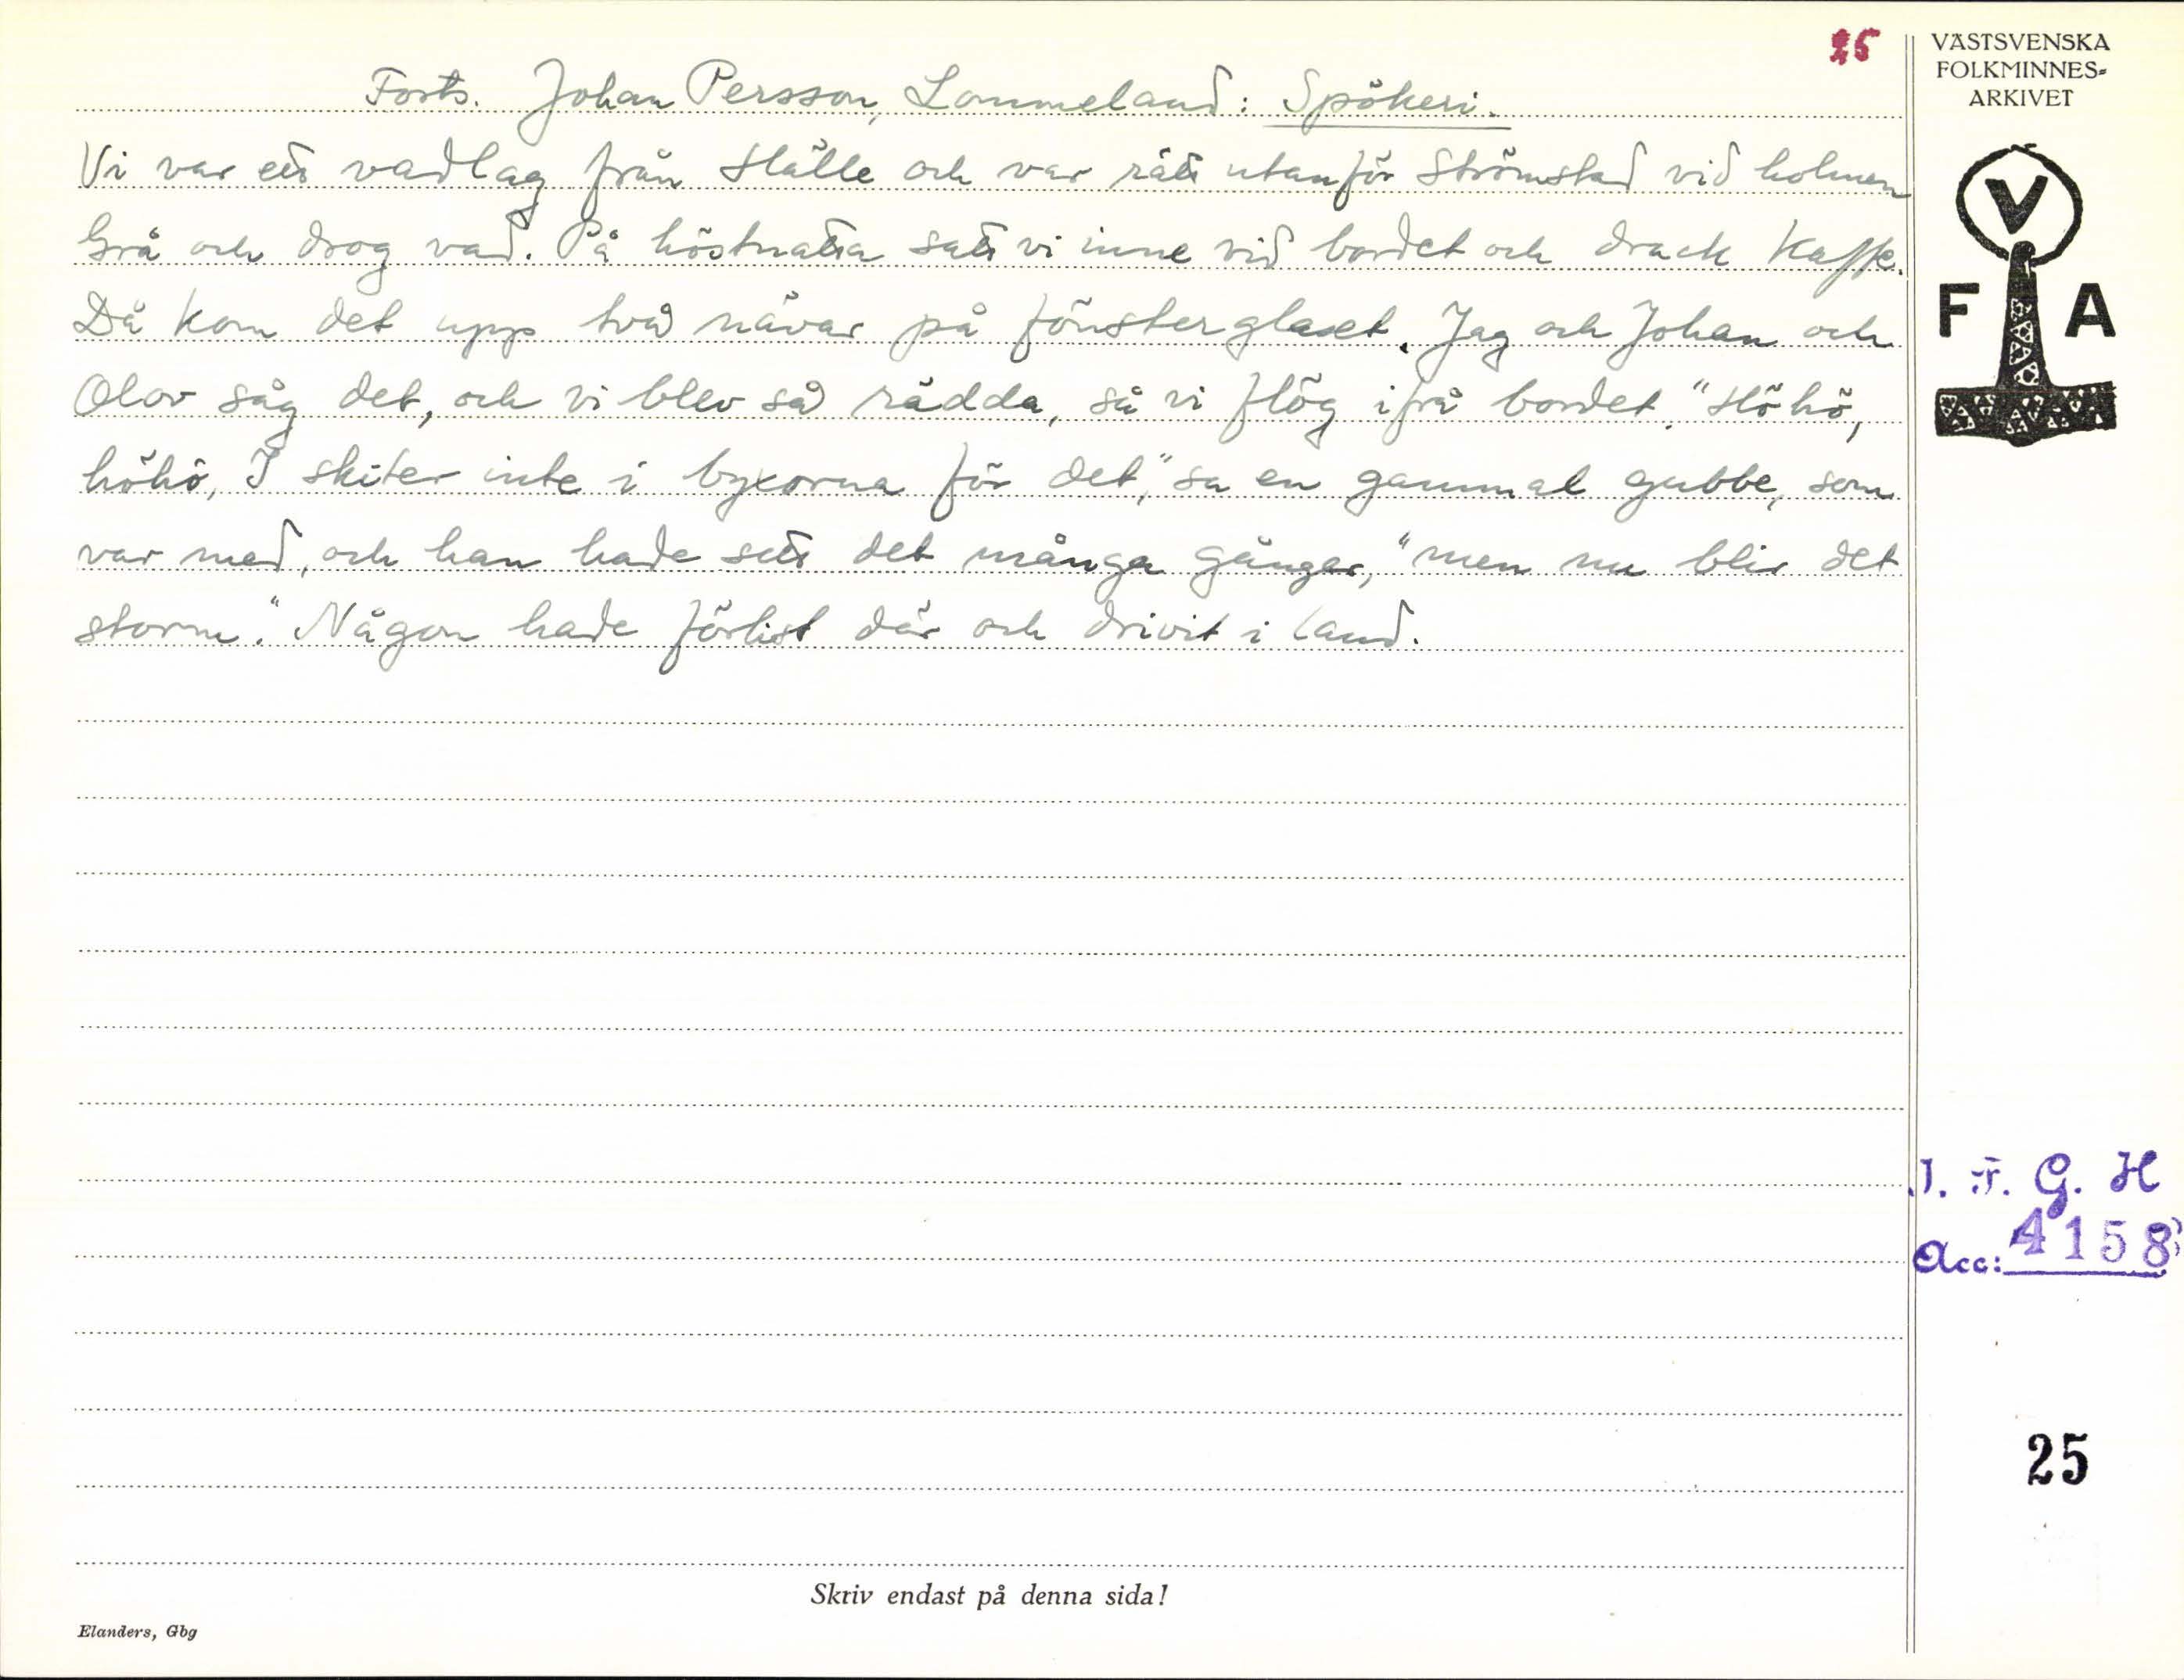 25
VÄSTSVENSKA
FOLKMINNES-
ARKIVET
Forts. Johan Persson, Lommeland: Spökeri.
Vi var ett vadlag från Hälle och var rätt utanför Strömstad vid holmen
Grå och drog vad. På höstnatta satt vi inne vid bordet och drack kaffe.
Då kom det upp två nävar på fönsterglaset. Jag och Johan och
Olov såg det, och vi blev så rädda, så vi flög ifrå bordet. "Höhö,
höhö, I skiter inte i byxorna för det," sa en gammal gubbe, som
var med, och han hade sett det många gånger, "men nu blir det
storm." Någon hade förlist där och drivit i land.
V
F A
I. F. G. H
Acc: 4158
25
Skriv endast på denna sida!
Elanders, Gbg